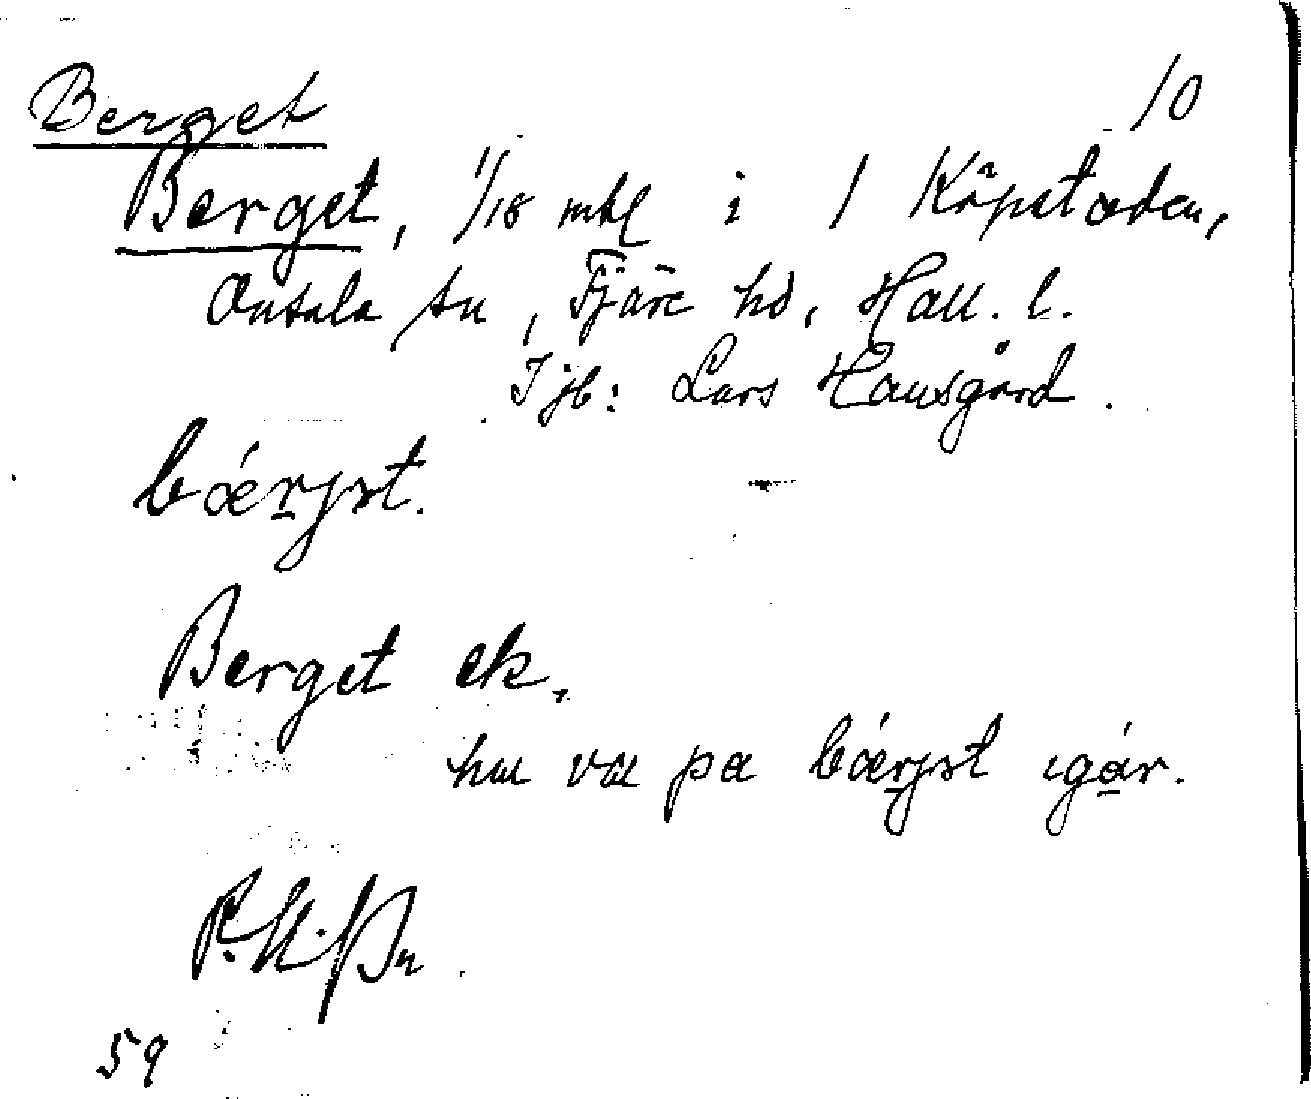 Berget 10
Berget, 1/18 mtl i 1 Köpstaden,
Onsala sn, Fjäre hd, Hall. l.
I jb: Lars Hansgård.
bǽrjst.
Berget ek.
hu va pa bǽrjst igár.
59